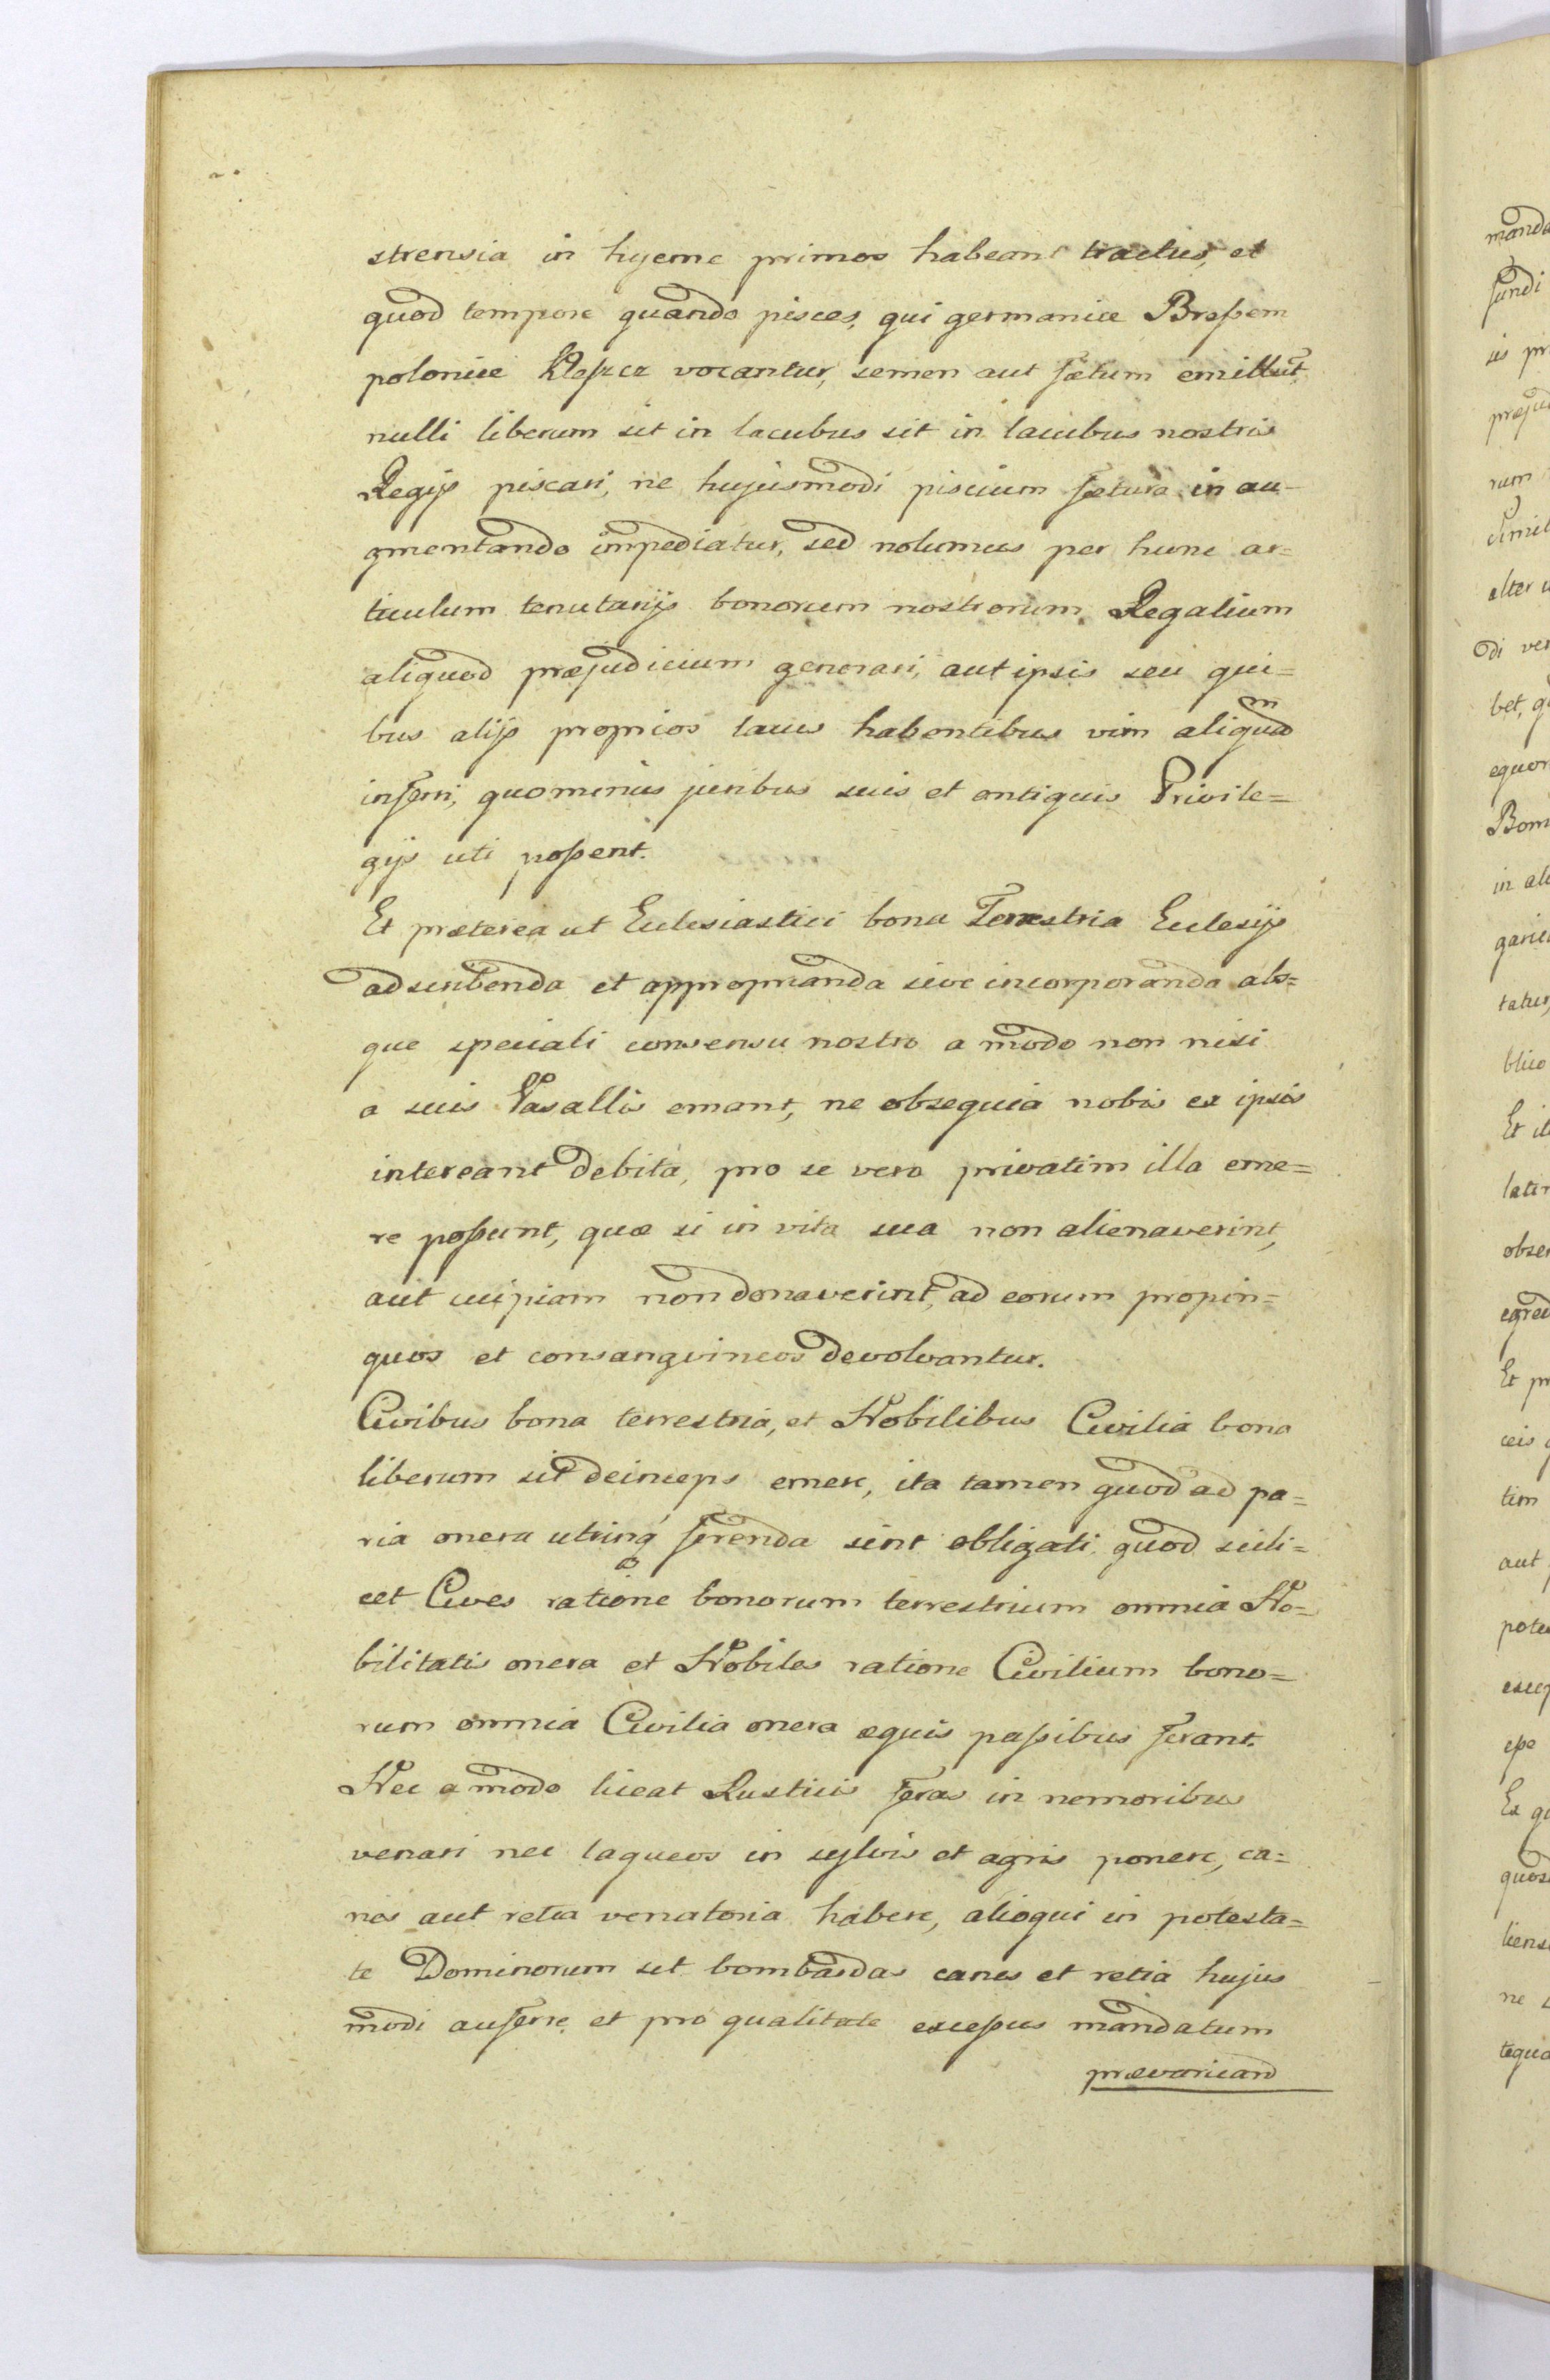 strensia in hyeme primos habeant tractus, et
quod tempore quando pisces, qui germanice Breßem
polonice Kleszcz vocantur, semen aut fætum emittut
nulli liberum sit in lacubus sit in lacubus nostris
Regijs piscari, ne hujusmodi piscium fætura in au-
gmentando impediatur, sed nolumus per hunc ar=
ticulum tenutarijs bonorum nostrorum Regalium
aliquod præjudicium generari, aut ipsis seu qui=
bus alijs proprios lacus habentibus vim aliquam
inferri, quominus juribus suis et antiquis Privile=
gijs uti poßent.
Et præterea ut Eclesiastici bona Terrestria Eclesijs
adscribenda et approprianda sive incorporanda abs=
que speciali consensu nostro a modo non nisi
a suis Vasallis emant, ne obsequia nobis ex ipsis
intereant debita, pro se vero privatim illa eme=
re poßunt, quæ si in vita sua non alienaverint,
aut cuipiam non donaverint, ad eorum propin=
quos et consangvineos devolvantur.
Civibus bona terrestria, et Nobilibus Civilia bona
liberum sit deinceps emere, ita tamen quod ad pa=
ria onera utrinq ferenda sint obligati quod scili=
cet Cives ratione bonorum terrestrium omnia No=
bilitatis onera et Nobiles ratione Civilium bono=
rum omnia Civilia onera æquis paßibus ferant.
Nec a modo liceat Rusticis feras in nemoribus
venari nec laqueos in sylvis et agris ponere, ca=
nes aut retia venatoria habere, alioqui in potesta=
te Dominorum sit bombardas canes et retia hujus
modi auferre et pro qualitate exceßus mandatum
prævaricand